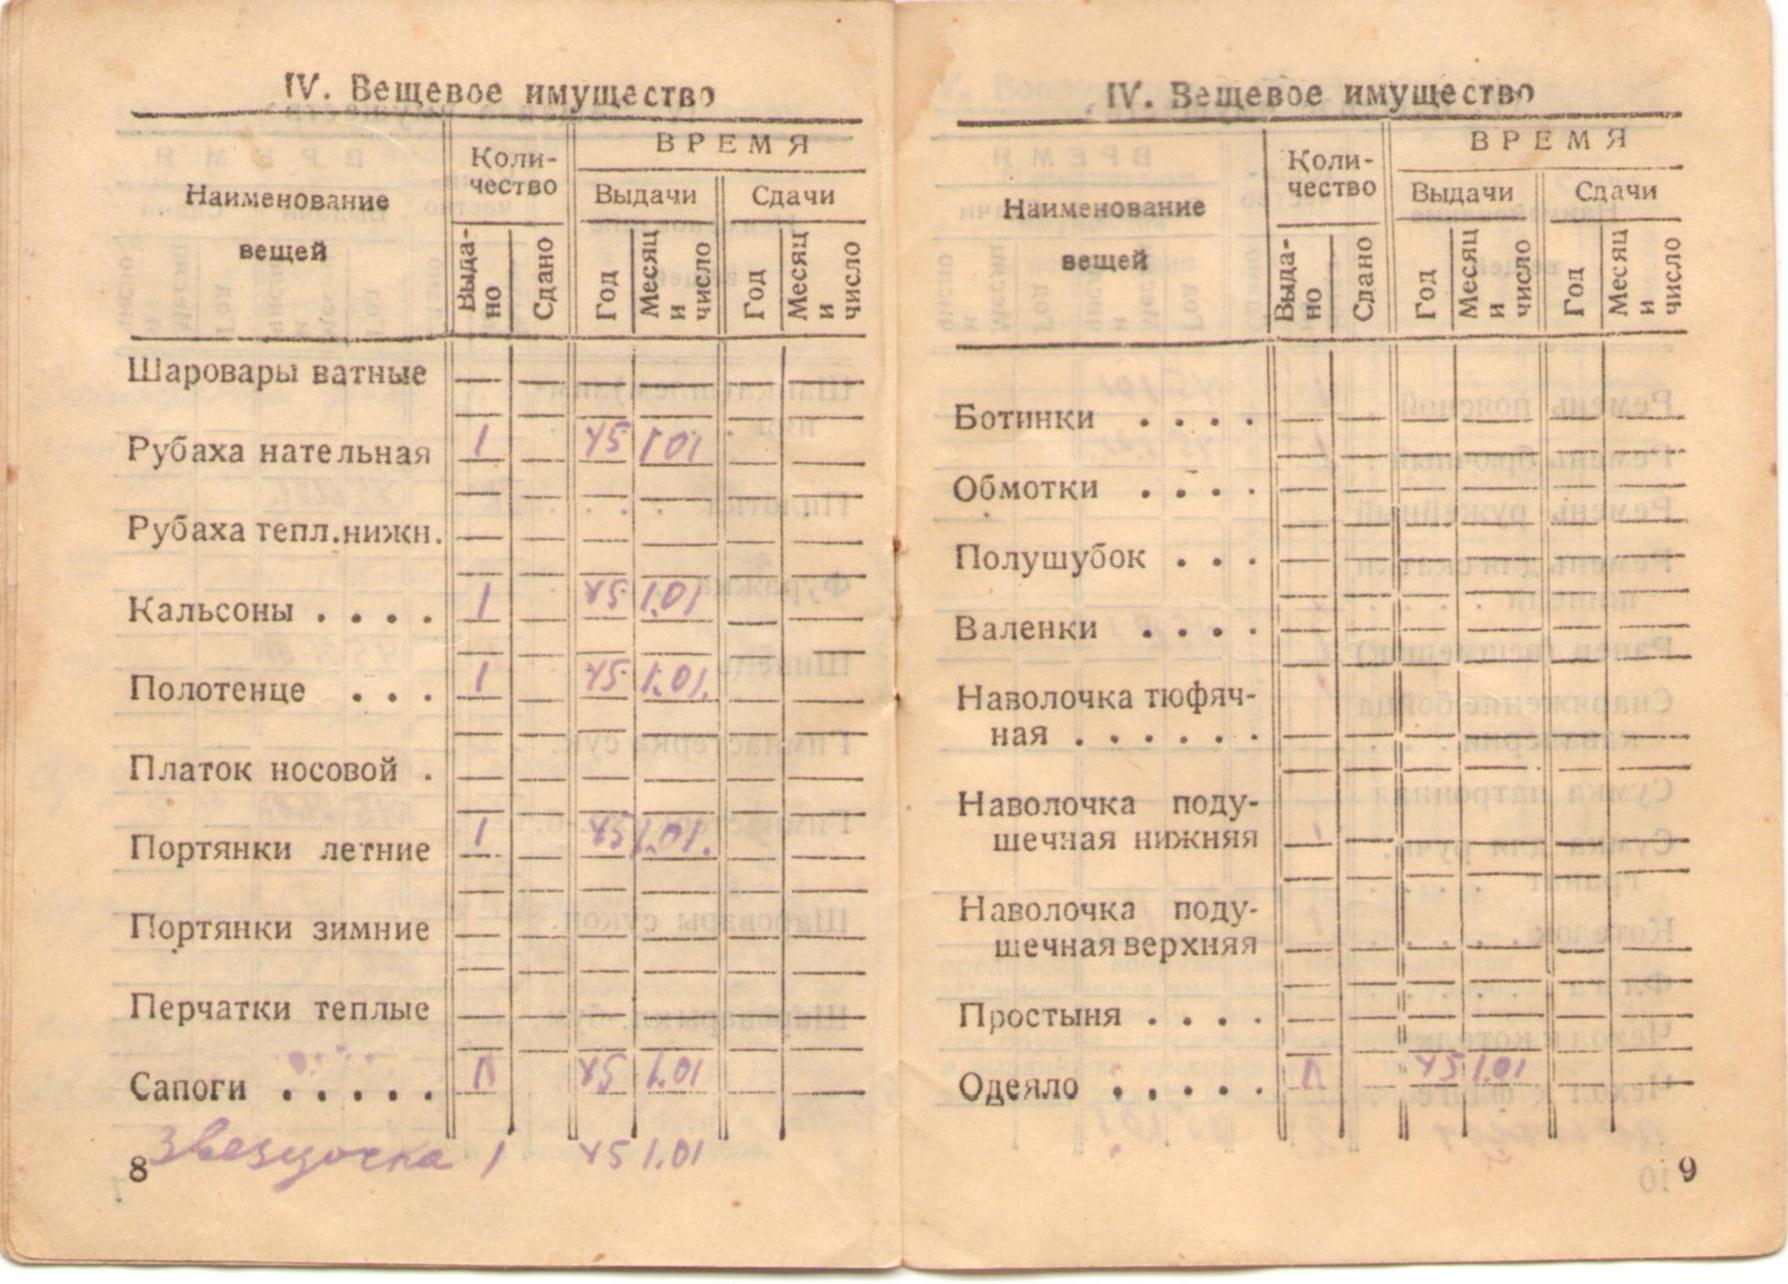 IV. Вещевое имущество
Наименование вещей
Количество
ВРЕМЯ
Выдачи
Сдачи
Выда-но
Сдано
Год
Месяц и число
Год
Месяц и число
Шаровары ватные
Рубаха нательная 1 45 1.01
Рубаха тепл.нижн.
Кальсоны . . . . 1 45 1.01
Полотенце . . . 1 45 1.01
Платок носовой .
Портянки летние 1 45 1.01.
Портянки зимние
Перчатки теплые
Сапоги . . . . . 1 45 1.01
Звездочка 1 45 1.01
8
IV. Вещевое имущество
Наименование вещей
Коли-
чество
ВРЕМЯ
Выдачи
Сдачи
Выда-но
Сдано
Год
Месяц и число
Год
Месяц и число
Ботинки . . . .
Обмотки . . . .
Полушубок . . .
Валенки . . . .
Наволочка тюфяч-
ная . . . . . .
Наволочка поду-
шечная нижняя
Наволочка поду-
шечная верхняя
Простыня . . . .
Одеяло . . . . . 1 45 1.01
9